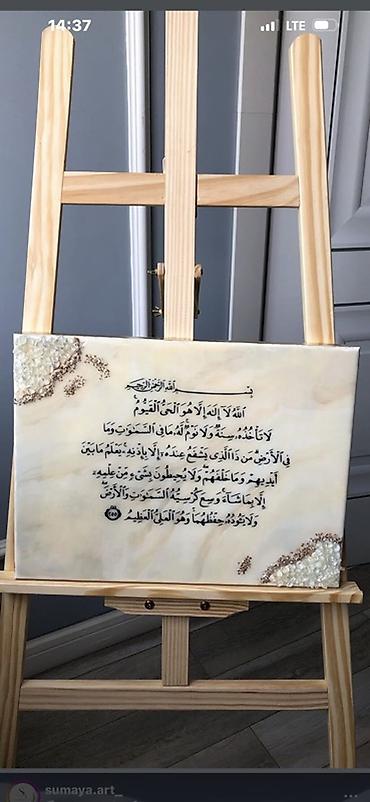 14:37
LTE
بِسْمِ اللَّهِ الرَّحْمَٰنِ الرَّحِيمِ
اللَّهُ لَا إِلَٰهَ إِلَّا هُوَ الْحَيُّ الْقَيُّومُ
لَا تَأْخُذُهُ سِنَةٌ وَلَا نَوْمٌ لَّهُ مَا فِي السَّمَٰوَٰتِ وَمَا
فِي الْأَرْضِ مَن ذَا الَّذِي يَشْفَعُ عِندَهُ إِلَّا بِإِذْنِهِ يَعْلَمُ مَا بَيْنَ
أَيْدِيهِمْ وَمَا خَلْفَهُمْ وَلَا يُحِيطُونَ بِشَيْءٍ مِّنْ عِلْمِهِ
إِلَّا بِمَا شَاءَ وَسِعَ كُرْسِيُّهُ السَّمَٰوَٰتِ وَالْأَرْضَ
وَلَا يَئُودُهُ حِفْظُهُمَا وَهُوَ الْعَلِيُّ الْعَظِيمُ
sumaya.art_